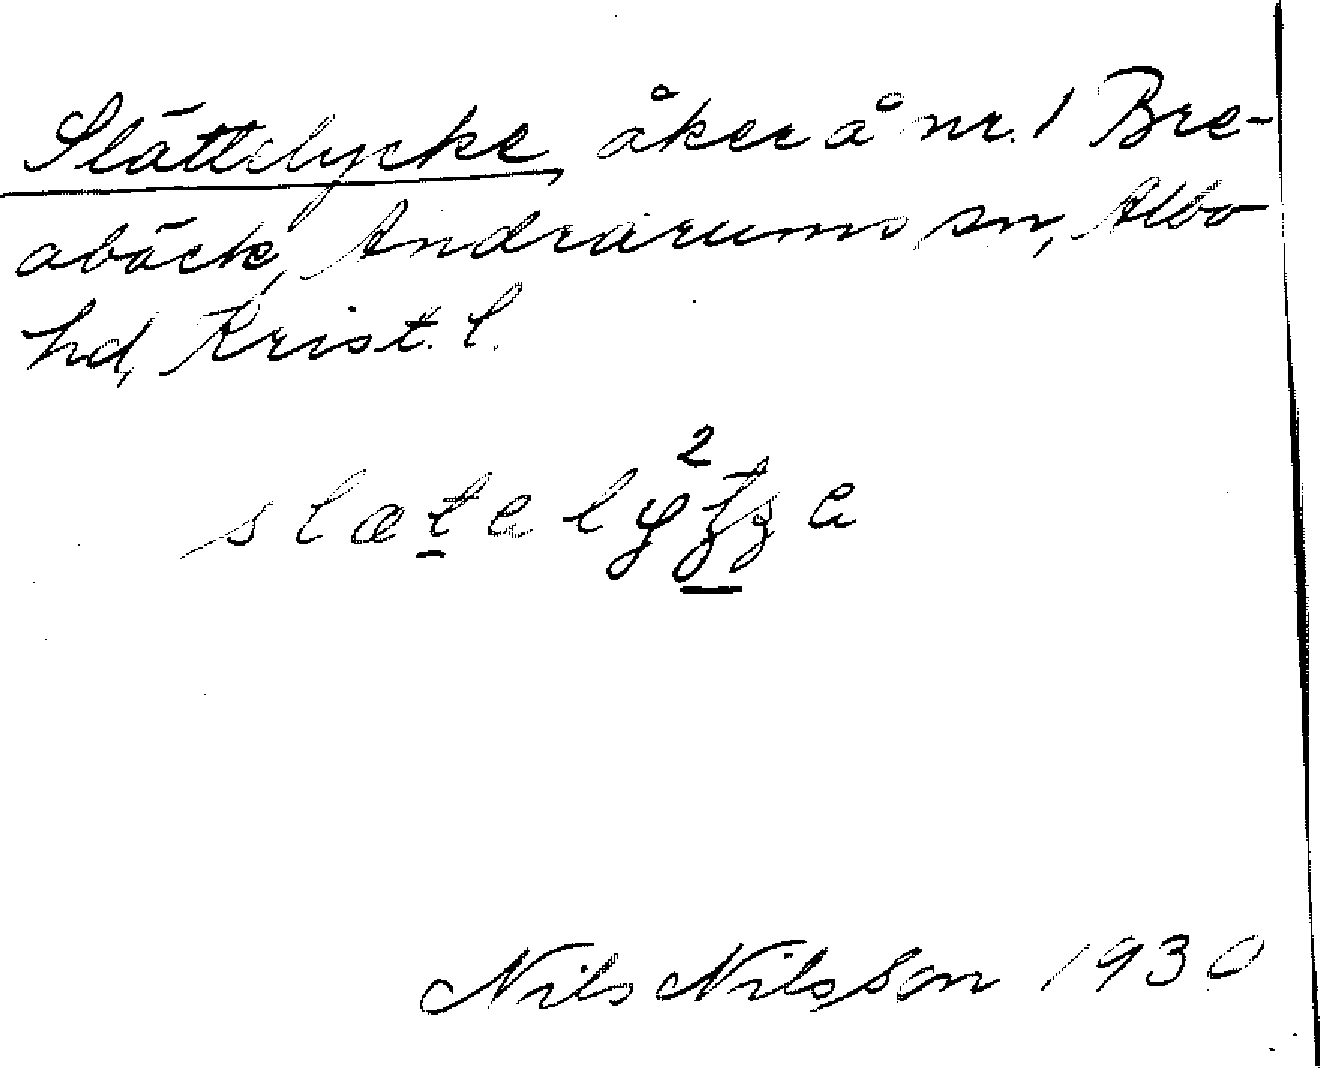 Slättelycke, åker å nr. 1 Bre-
aback, Andrarums sn, Albo
hd, Krist. l.
Nils Nilsson 1930